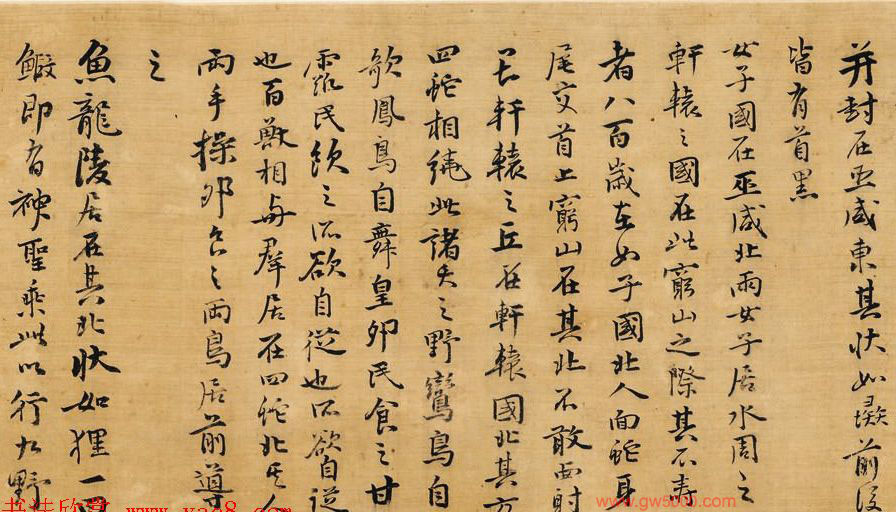 并封在巫咸東其狀如彘前後
皆有首黑
女子國在巫咸北兩女子居水周之
軒轅之國在此窮山之際其不壽
者八百歲在女子國北人面蛇身
尾交首上窮山在其北不敢西射
軒轅之丘在軒轅國北其方
四蛇相繞此諸夭之野鸞鳥自
歌鳳鳥自舞皇卵民食之甘
露民飲之所欲自從也所欲自從
也百獸相與羣居在四蛇北其人
兩手操卵食之兩鳥居前導
之
魚龍陵居在其北狀如狸一
鰕即有神聖乘此以行九野
www.yac8.com
www.gw5000.com